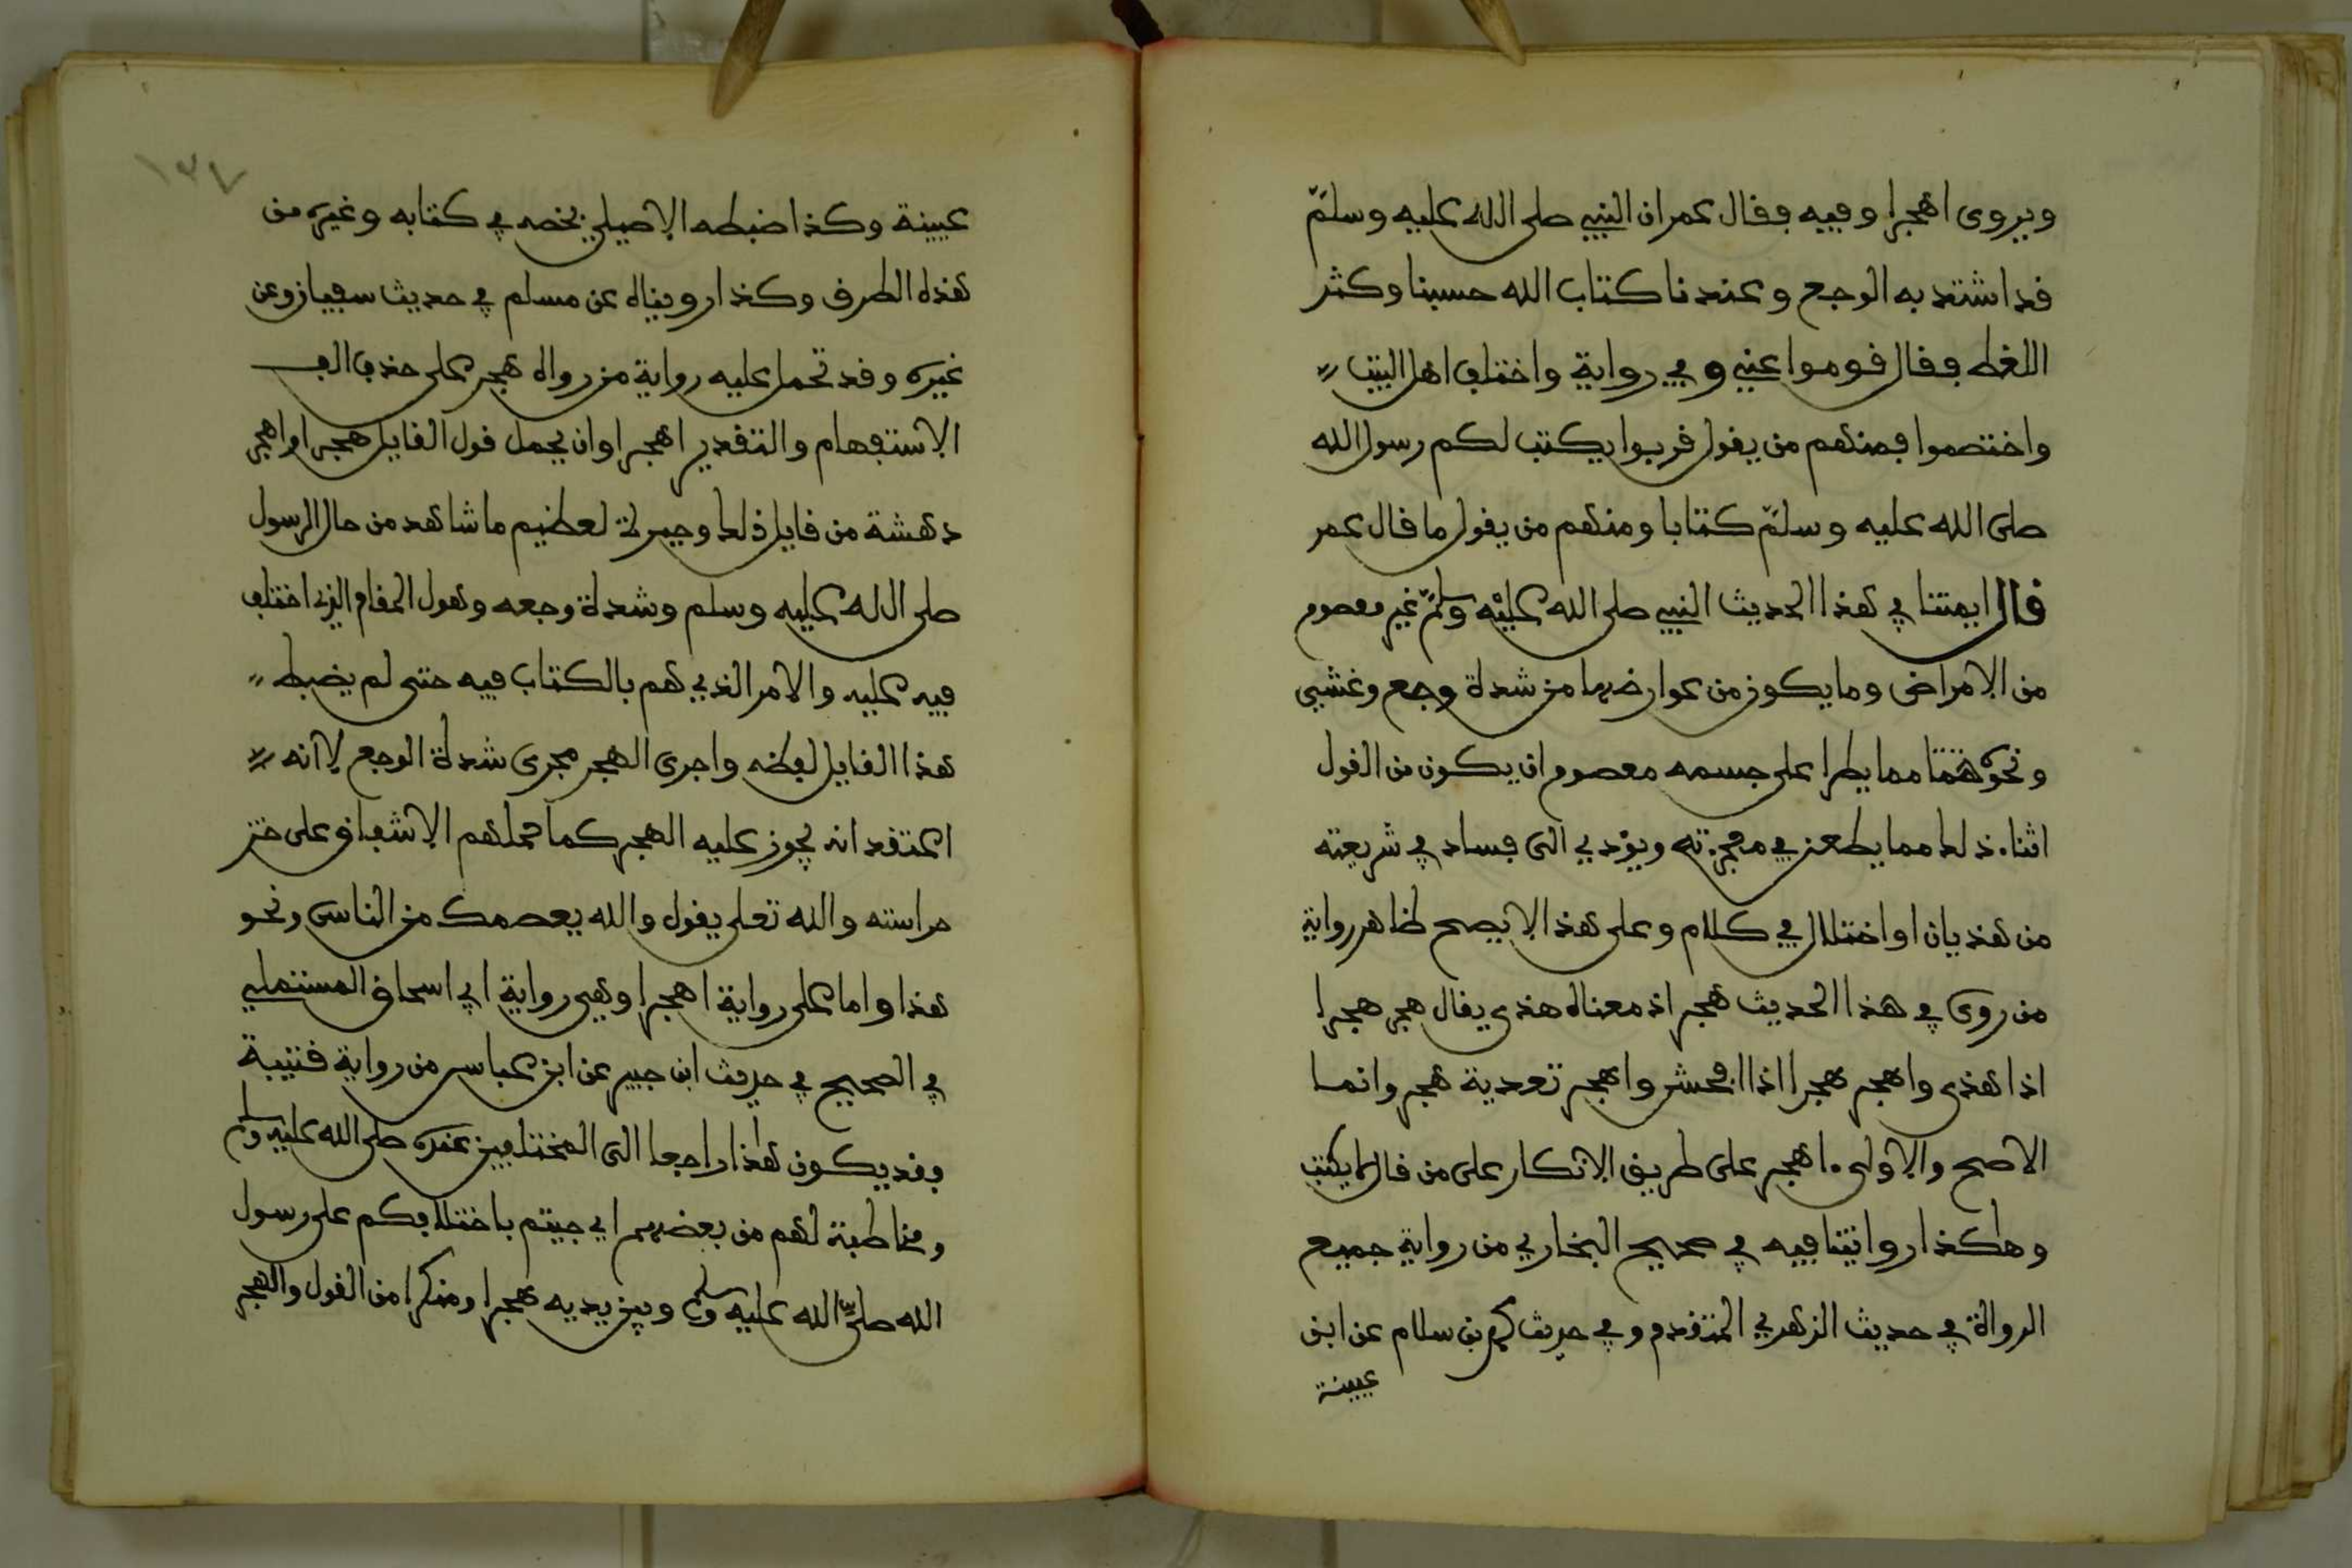 ويروى اهجرا وفيه فقال عمر ان النبي صلى الله عليه وسلم
قد اشتد به الوجع وعندنا كتاب الله حسبنا وكثر
اللغط فقال قوموا عني وفي رواية واختلف اهل البيت
واختصموا فمنهم من يقول قربوا يكتب لكم رسول الله
صلى الله عليه وسلم كتابا ومنهم من يقول ما قال عمر
قال ايمتنا في هذا الحديث النبي صلى الله عليه وسلم غير معصوم
من الامراض وما يكون من عوارضها من شدة وجع وغشي
ونحوه مما يطرا على جسمه معصوم ان يكون من القول
اثناء ذلك مما يطعن في معجزته ويؤدي الى فساد في شريعته
من هذيان او اختلال في كلام وعلى هذا لا يصح ظاهر رواية
من روى في هذا الحديث هجر اذ معناه هذى يقال هجر هجرا
اذا هذى واهجر هجرا اذا افحش واهجر تعدية هجر وانما
الاصح والاولى اهجر على طريق الانكار على من قال لا يكتب
وهكذا روايتنا فيه في صحيح البخاري من رواية جميع
الرواة في حديث الزهري المتقدم وفي حديث محمد بن سلام عن ابن
عيينة
١٣٧
عيينة وكذا ضبطه الاصيلي بخطه في كتابه وغيره من
هذه الطرق وكذا رويناه عن مسلم في حديث سفيان وعن
غيره وقد تحمل عليه رواية من رواه هجر على حذف الف
الاستفهام والتقدير اهجر او ان يحمل قول القايل هجر او اهجر
دهشة من قايل ذلك وحيرة لعظيم ما شاهد من حال الرسول
صلى الله عليه وسلم وشدة وجعه وهول المقام الذي اختلف
فيه عليه والامر الذي هم بالكتاب فيه حتى لم يضبط
هذا القايل لفظه واجرى الهجر مجرى شدة الوجع لا انه
اعتقد انه يجوز عليه الهجر كما حملهم الاشفاق على
حراسته والله تعلى يقول والله يعصمك من الناس ونحو
هذا واما على رواية اهجرا وهي رواية ابي اسحاق المستملي
في الصحيح في حديث ابن جبير عن ابن عباس من رواية قتيبة
فقد يكون هذا راجعا الى المختلفين عنده صلى الله عليه وسلم
ومخاطبة لهم من بعضهم اي جيتم باختلافكم على رسول
الله صلى الله عليه وسلم وبين يديه هجرا ومنكرا من القول والهجر